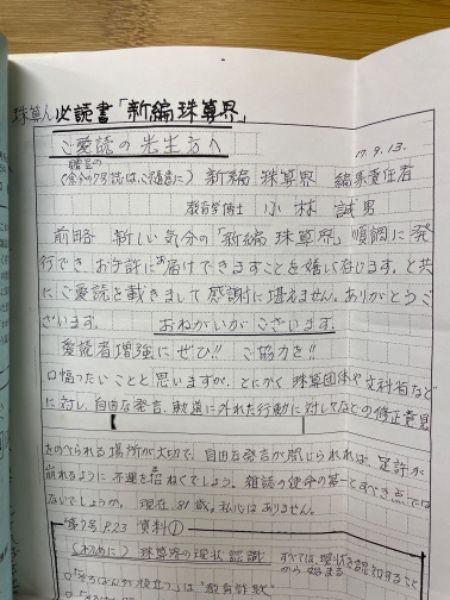 珠算人必読書「新編珠算界」
ご愛読の先生方へ
17.9.13.
贈呈の
新編 珠算界 編集責任者
教育学博士 小林 誠男
前略 新しい気分の「新編 珠算界」順調に発
行でき、お手許にお届けできますことを嬉しく存じます。と共
に、ご愛読を戴きまして感謝に堪えません。ありがとうご
ざいます。 おねがいがございます。
愛読者増強にぜひ!! ご協力を!!
口幅ったいことと思いますが、とにかく珠算団体や文科省など
に対し、自由な発言、軌道に外れた行動に対してなどの修正意見
をのべられる場所が大切で、自由な発言が閉じられれば、足許が
崩れるように不運を招ねくでしょう。雑誌の使命の第一とすべき点では
ないでしょうか。 現在、81歳。私心はありません。
第7号 P.23 資料①
(はじめに) 珠算界の現状認識 すべては、現状を認知すること
から始まる
"教育詐欺"